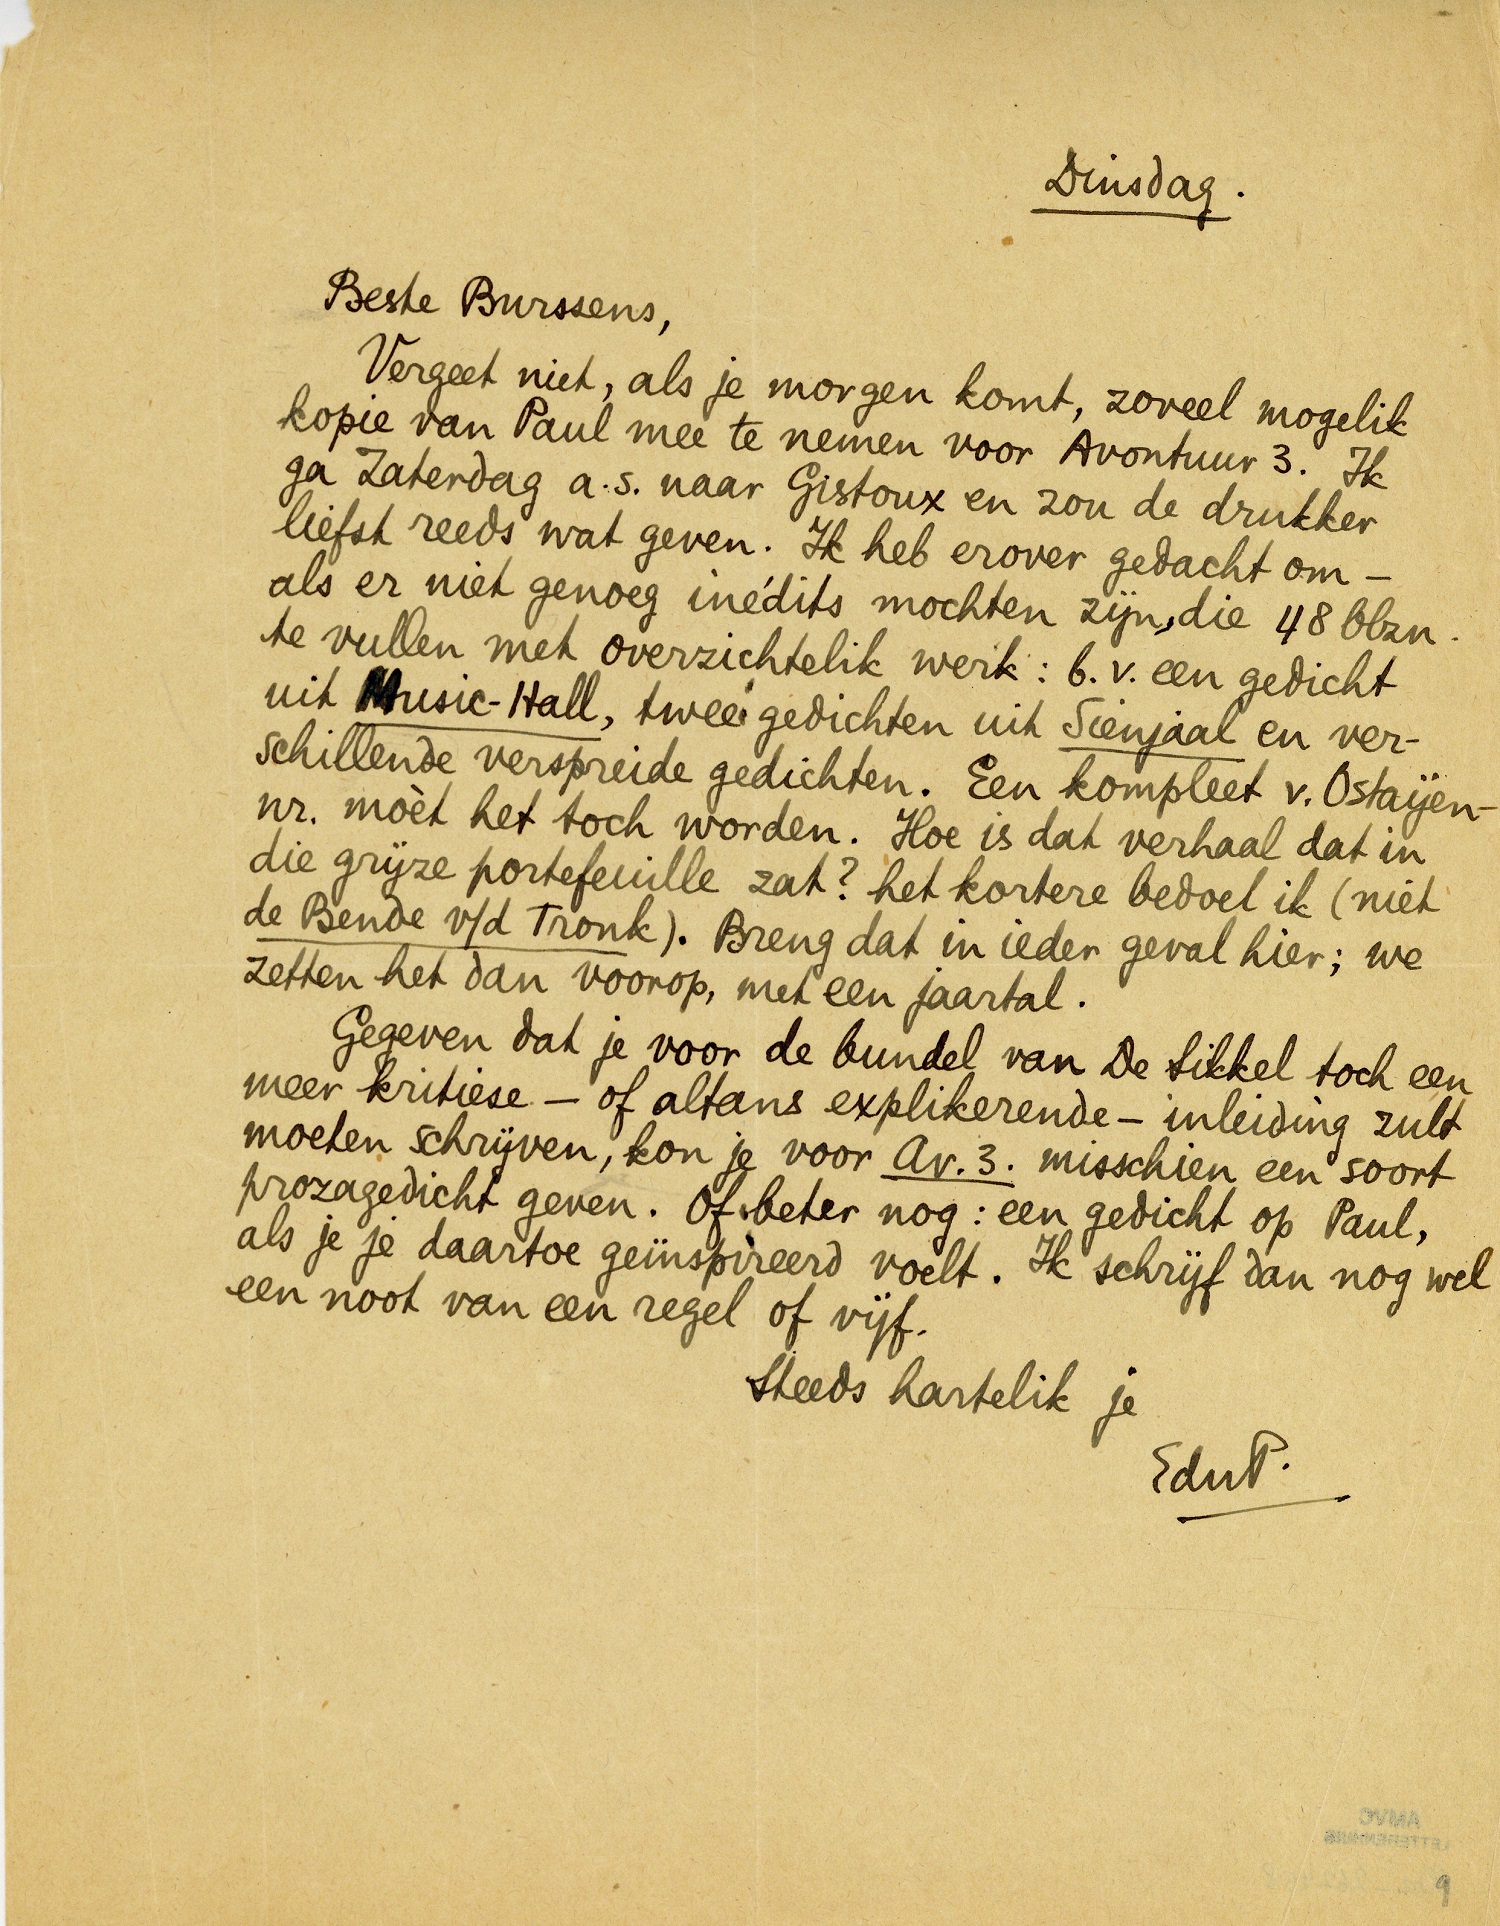 Dinsdag.
Beste Burssens,
Vergeet niet, als je morgen komt, zoveel mogelik
kopie van Paul mee te nemen voor Avontuur 3. Ik
ga Zaterdag a.s. naar Gistoux en zou de drukker
liefst reeds wat geven. Ik heb erover gedacht om –
als er niet genoeg inédits mochten zijn, die 48 blzn.
te vullen met overzichtelik werk: b.v. een gedicht
uit Music-Hall, twee gedichten uit Sienjaal en ver-
schillende verspreide gedichten. Een kompleet v. Ostaijen-
nr. mòèt het toch worden. Hoe is dat verhaal dat in
die grijze portefeuille zat? het kortere bedoel ik (niet
de Bende v/d Tronk). Breng dat in ieder geval hier; we
zetten het dan voorop, met een jaartal.
Gegeven dat je voor de bundel van De Sikkel toch een
meer kritiese – of altans explikerende – inleiding zult
moeten schrijven, kon je voor Av. 3. misschien een soort
prozagedicht geven. Of beter nog: een gedicht op Paul,
als je je daartoe geïnspireerd voelt. Ik schrijf dan nog wel
een noot van een regel of vijf.
Steeds hartelik je
EduP.
AMVC
LETTERENHUIS
9